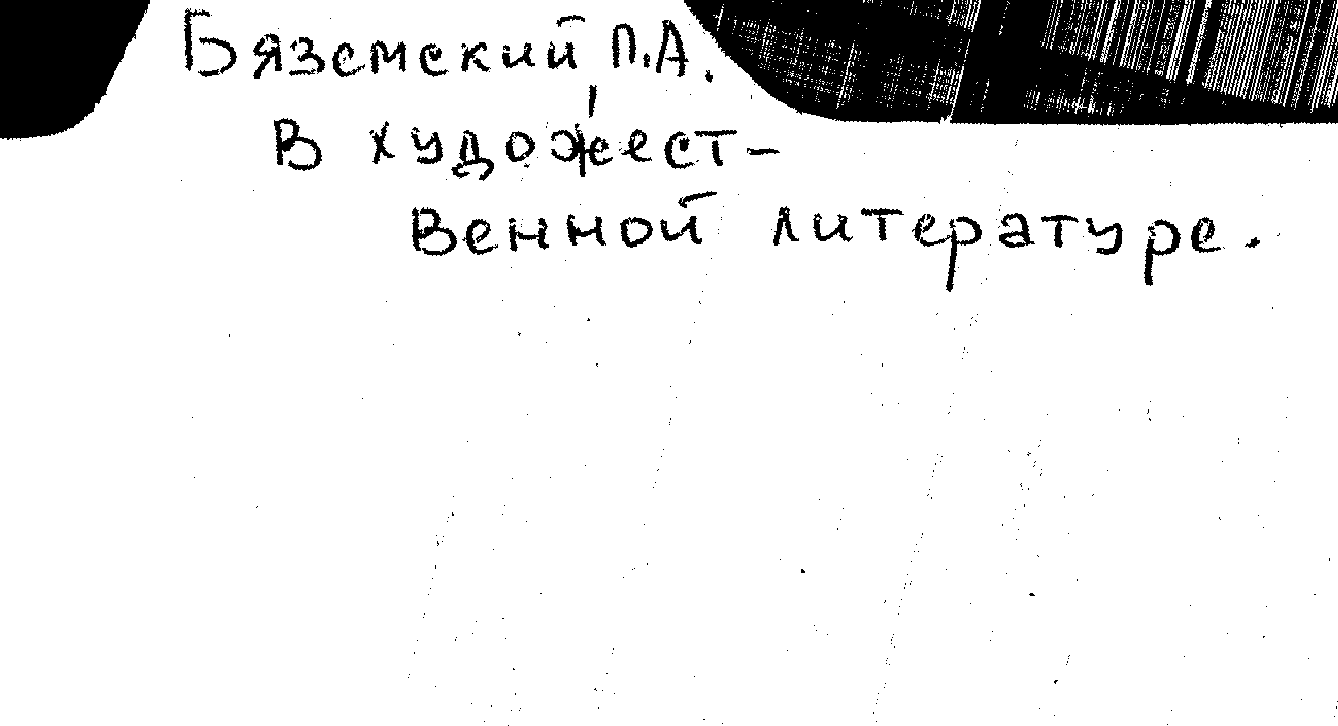 Вяземский П.А.
В художест-
венной литературе.